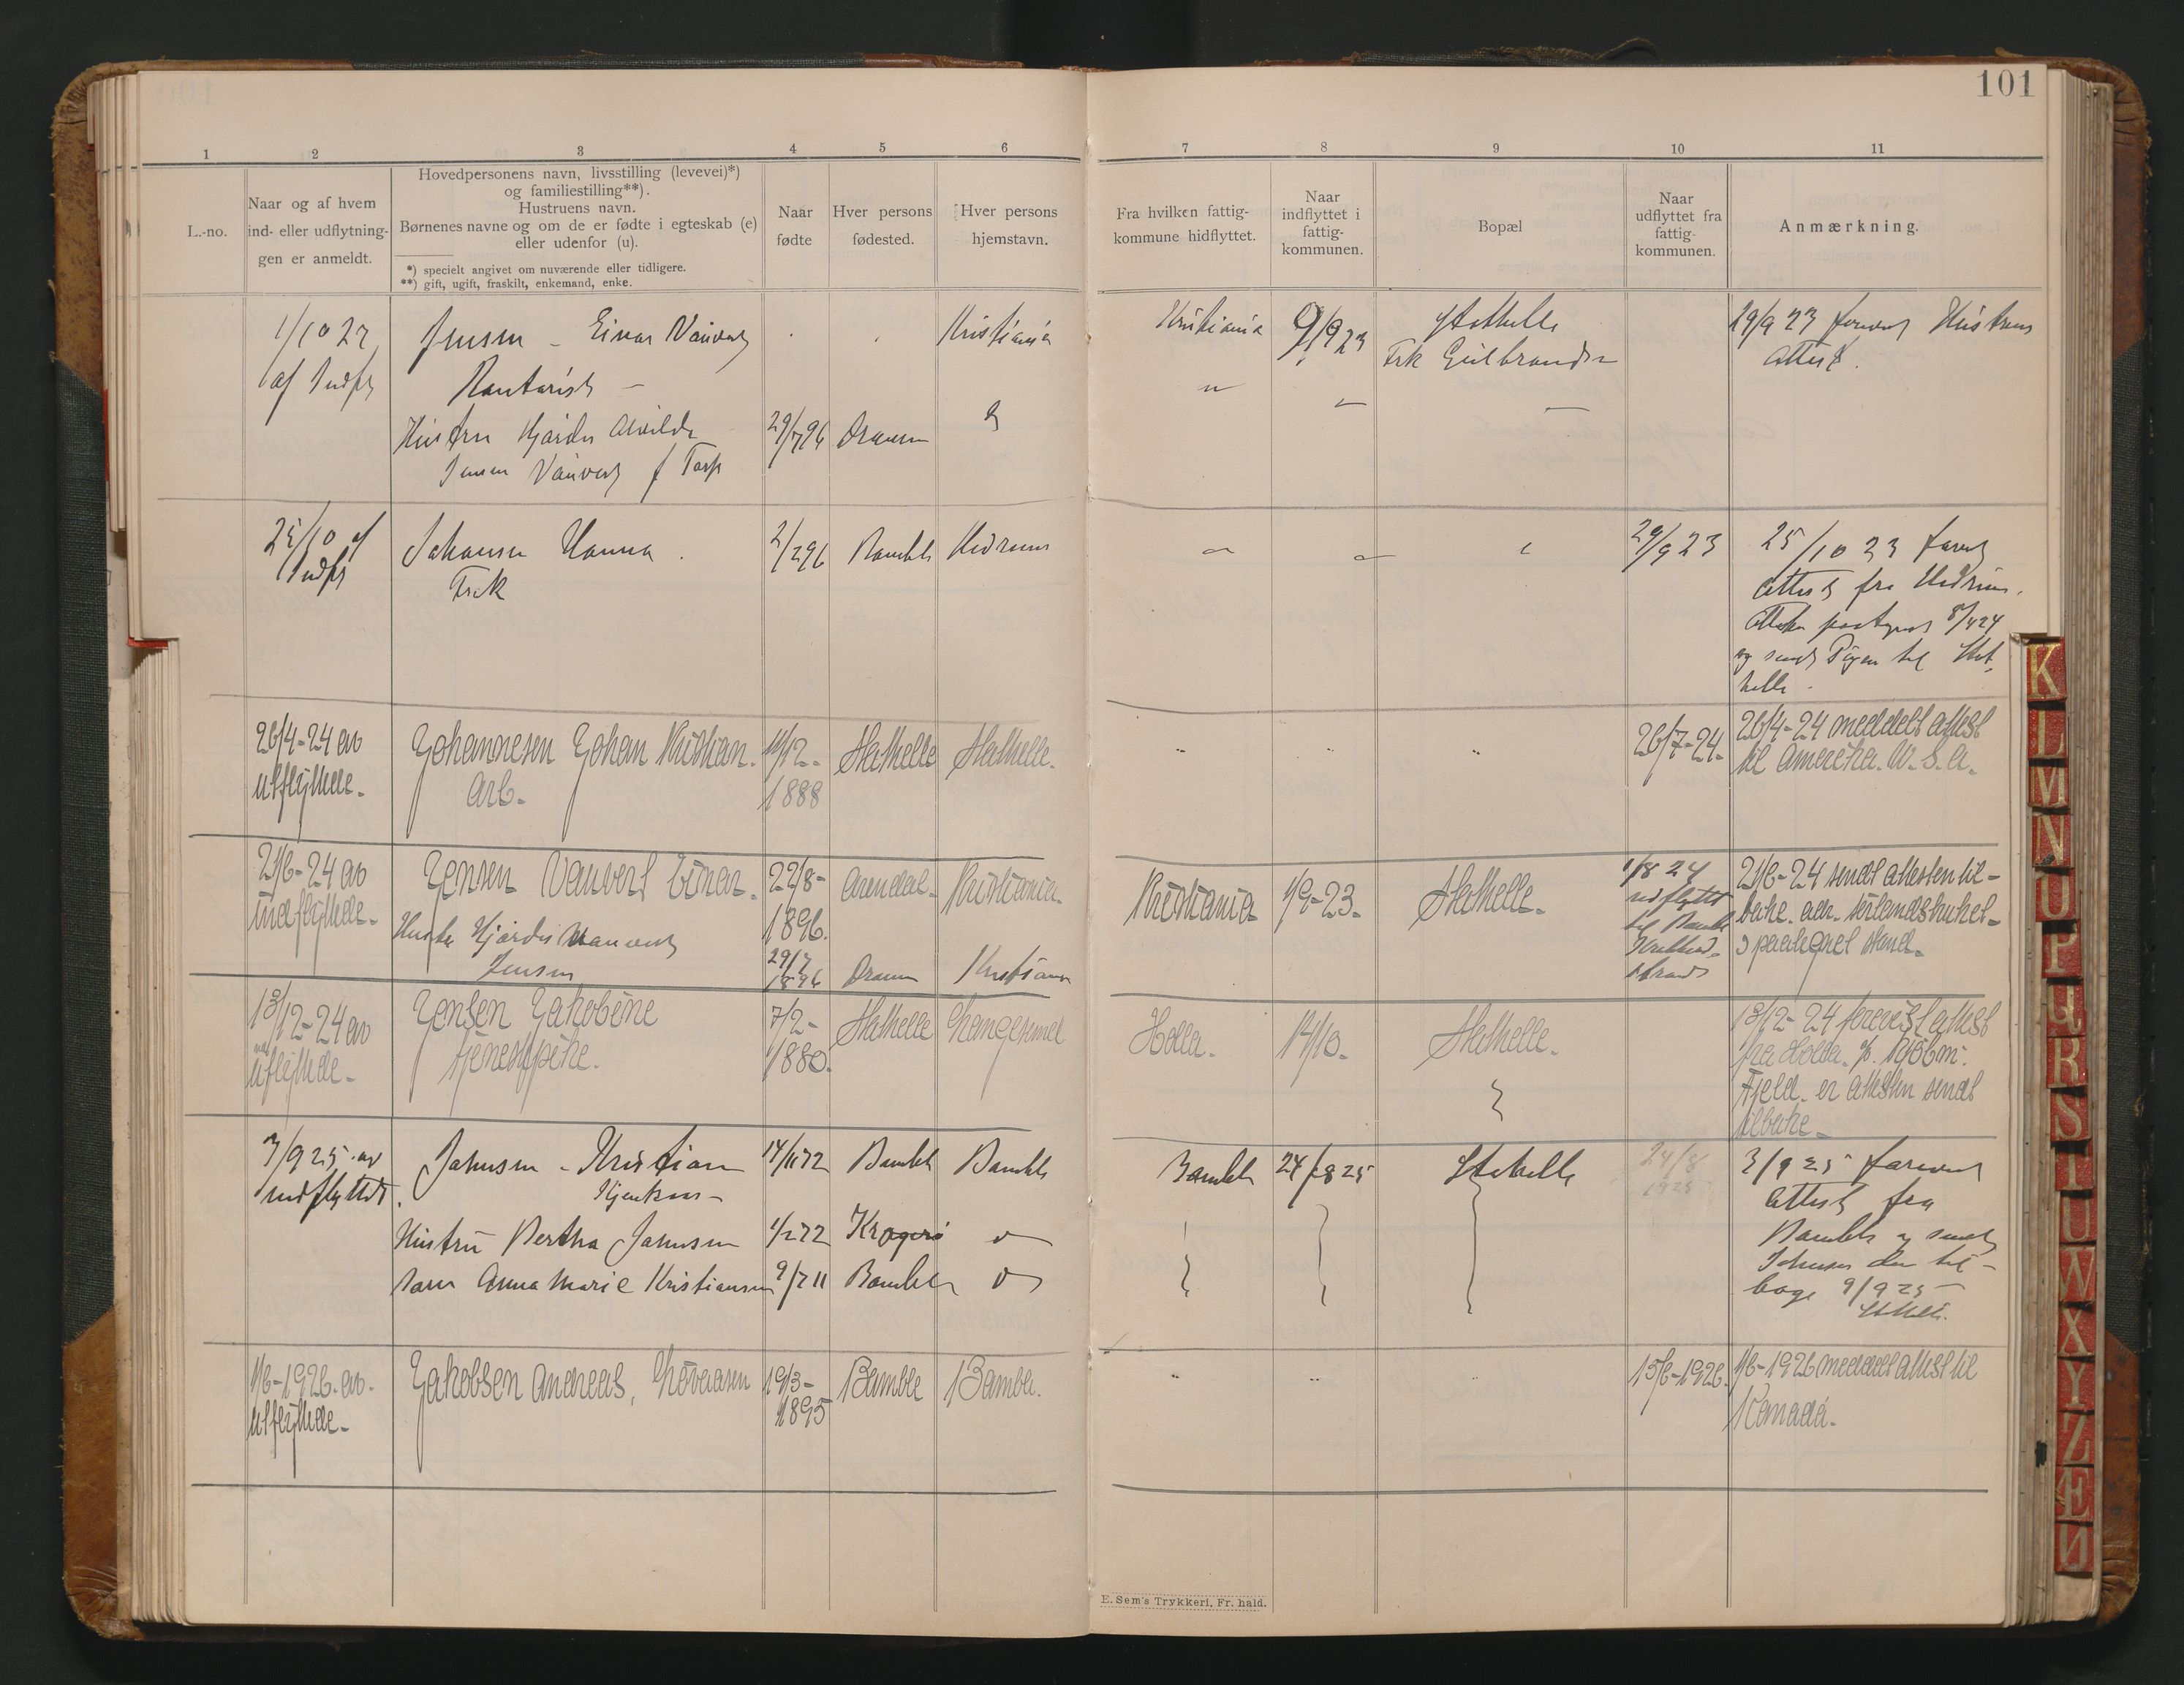 101
1 2 3 4 5 6 7 8 9 10 11
L.-no.
Naar og af hvem
ind- eller udflytnin-
gen er anmeldt.
Hovedpersonens navn, livsstilling (levevei)*)
og familiestilling**).
Hustruens navn.
Børnenes navne og om de er fødte i egteskab (e)
eller udenfor (u).
*) specielt angivet om nuværende eller tidligere.
**) gift, ugift, fraskilt, enkemand, enke.
Naar
fødte
Hver persons
fødested.
Hver persons
hjemstavn.
Fra hvilken fattig-
kommune hidflyttet.
Naar
indflyttet i
fattig-
kommunen.
Bopæl
Naar
udflyttet fra
fattig-
kommunen.
Anmærkning.
af Indfl
Jensen - Einar
Kristiania
Kristiania
9/9 23
Stathelle
Frk Gulbrandsen
19/9 23 Hustrus
Attest.
Hustru Hjørdis Alvilda
Jensen f Torp
29/7 96
25/10 af
Indfl
Johansen Hanna.
Frk
2/2 96
Bamble
Hedrum
29/9 23
25/10 23
Attest fra Hedrum.
8/4 24
og sendt Pigen til Stat-
helle.
26/4-24 av
utflyttede.
Johannesen Johan Kristian.
Arb.
11/12-
1888
Stathelle
Stathelle.
26/7-24.
26/4-24 meddelt attest
til Amerika. U.S.A.
21/6-24 av
indflyttede.
Jensen Vauvert Einar.
22/8-
1896.
Arendal.
Kristiania.
Kristiania
1/9-23.
Stathelle.
1/8 24
udflyttet
til Bamble
21/6-24 sendt attesten til-
bake.
Hustru Hjørdis Vauvert
Jensen
29/7
1896
Kristiania
13/12-24 av
Jensen Jakobine
tjenestpike.
7/2-
1880.
Stathelle
Langesund
Holla.
14/10.
Stathelle.
13/12-24 forevist attest
fra Holla.
Fjeld. er attesten sendt
tilbake.
3/9 25 av
indflyttet.
Jahnsen - Kristian
14/11 72
Bamble
Bamble
Bamble
24/8 25
Stathelle
24/8
1925
3/9 25 forevist
Attest fra
Bamble og sendt
Johnsen den til-
bage 9/9 25
Stathelle.
Hustru Bertha Jahnsen
1/2 72
Kragerø
Barn Anna Marie Kristiansen
9/7 11
Bamble
1/6-1926. av.
utflyttede.
Jakobsen Andreas,
19/3-
1895
Bamble
Bamble.
15/6-1926.
1/6-1926 meddelt attest til
Kanada.
E. Sem's Trykkeri, Fr. hald.
K
L
M
N
O
P
Q
R
S
T
U
W
X
Y
Z
Æ
Ø